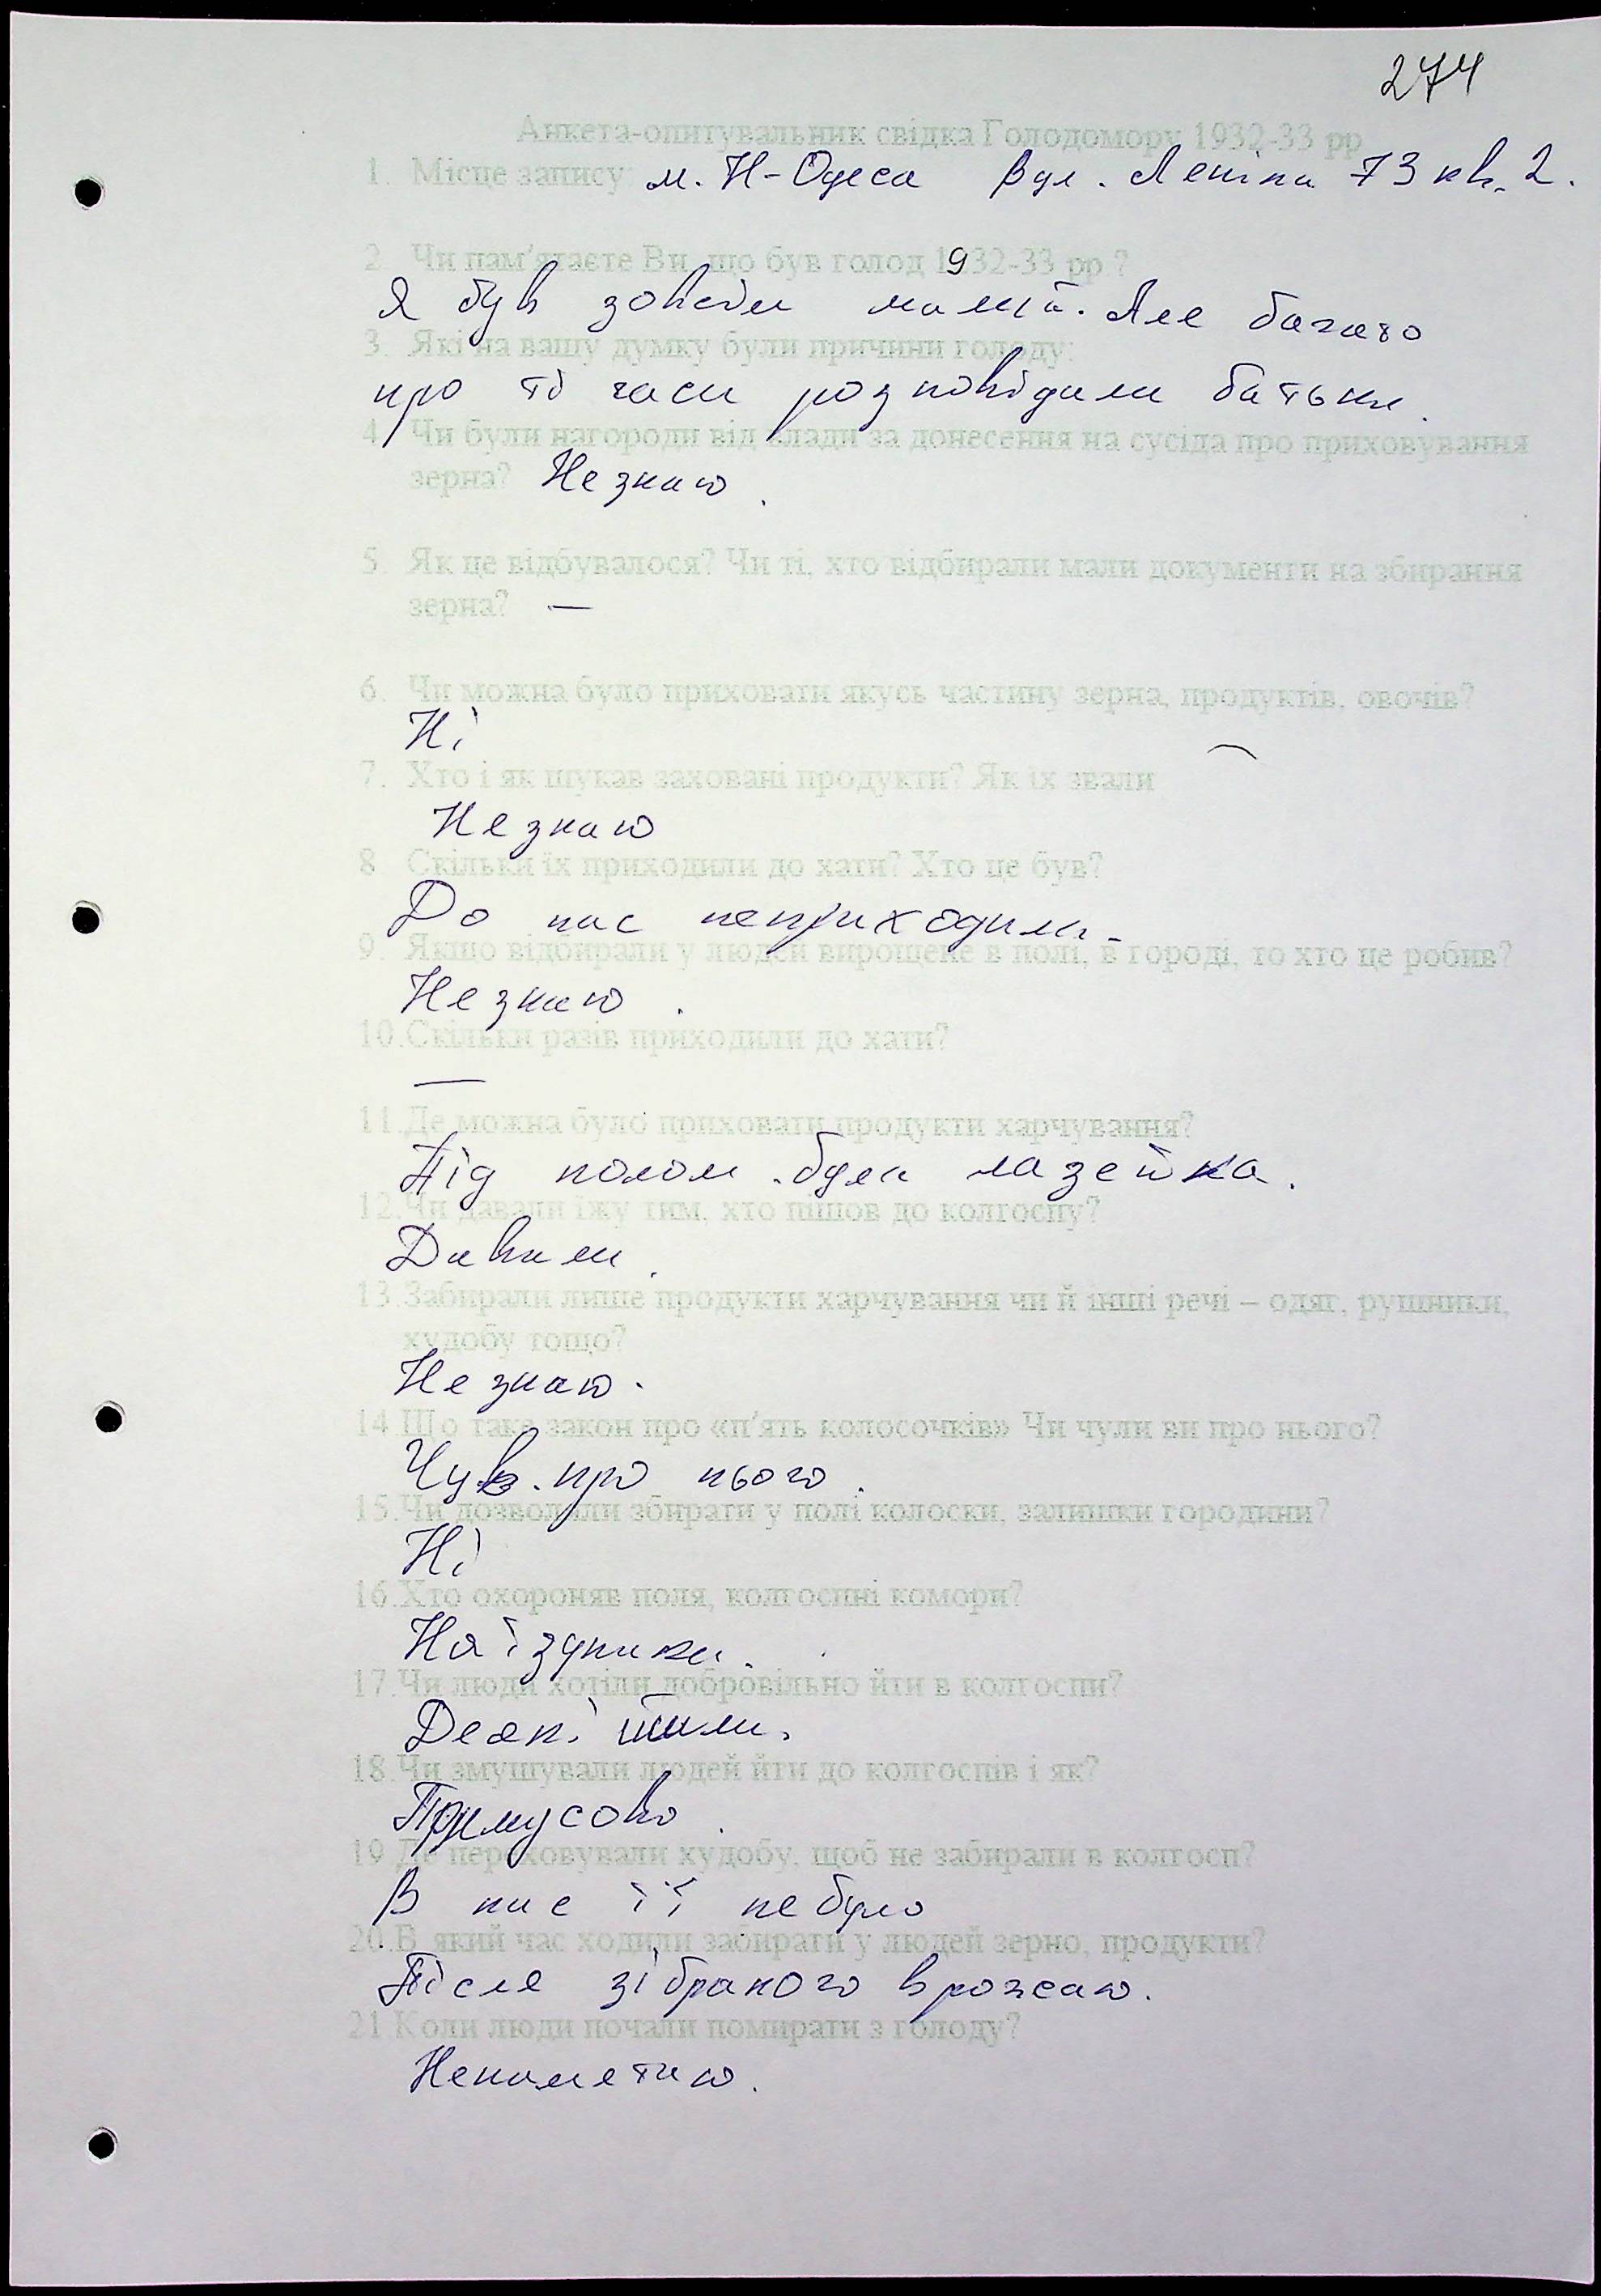 274
Анкета-опитувальник свідка Голодомору 1932-33 рр
1. Місце запису: м. Н-Одеса вул. Леніна 73 кв. 2.
2. Чи пам'ятаєте Ви, що був голод 1932-33 рр ?
Я був зовсім малий. Але багато
3. Які на вашу думку були причини голоду:
про ті часи розповідали батьки.
4. Чи були нагороди від влади за донесення на сусіда про приховування
зерна? Не знаю.
5. Як це відбувалося? Чи ті, хто відбирали мали документи на збирання
зерна? —
6. Чи можна було приховати якусь частину зерна, продуктів, овочів?
Ні
7. Хто і як шукав заховані продукти? Як їх звали
Не знаю
8. Скільки їх приходили до хати? Хто це був?
До нас неприходили.
9. Якщо відбирали у людей вирощене в полі, в городі, то хто це робив?
Не знаю.
10. Скільки разів приходили до хати?
—
11. Де можна було приховати продукти харчування?
Під полом була лазейка.
12. Чи давали їжу тим, хто пішов до колгоспу?
Давали.
13. Забирали лише продукти харчування чи й інші речі – одяг, рушники,
худобу тощо?
Не знаю.
14. Що таке закон про «п'ять колосочків» Чи чули ви про нього?
Чув про нього.
15. Чи дозволяли збирати у полі колоски, залишки городини?
Ні
16. Хто охороняв поля, колгоспні комори?
Наїздники.
17. Чи люди хотіли добровільно йти в колгоспи?
Деякі йшли.
18. Чи змушували людей йти до колгоспів і як?
Примусово.
19. Де переховували худобу, щоб не забирали в колгосп?
В нас її небуло
20. В який час ходили забирати у людей зерно, продукти?
Після зібраного врожаю.
21. Коли люди почали помирати з голоду?
Непамятаю.